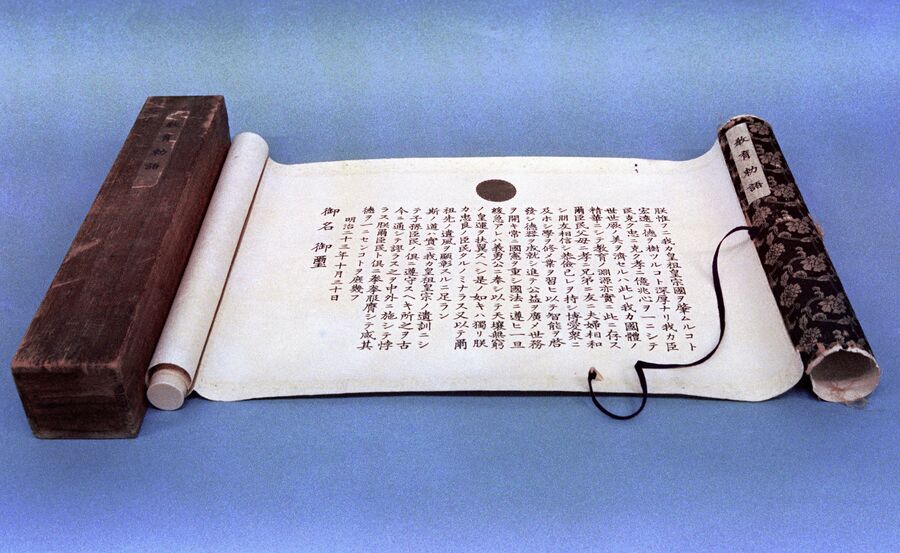 教育勅語
朕惟フニ我カ皇祖皇宗國ヲ肇ムルコト
宏遠ニ德ヲ樹ツルコト深厚ナリ我カ臣
民克ク忠ニ克ク孝ニ億兆心ヲ一ニシテ
世世厥ノ美ヲ濟セルハ此レ我カ國體ノ
精華ニシテ教育ノ淵源亦實ニ此ニ存ス
爾臣民父母ニ孝ニ兄弟ニ友ニ夫婦相和
シ朋友相信シ恭儉己レヲ持シ博愛衆ニ
及ホシ學ヲ修メ業ヲ習ヒ以テ智能ヲ啓
發シ德器ヲ成就シ進テ公益ヲ廣メ世務
ヲ開キ常ニ國憲ヲ重シ國法ニ遵ヒ一旦
緩急アレハ義勇公ニ奉シ以テ天壤無窮
ノ皇運ヲ扶翼スヘシ是ノ如キハ獨リ朕
カ忠良ノ臣民タルノミナラス又以テ爾
祖先ノ遺風ヲ顯彰スルニ足ラン
斯ノ道ハ實ニ我カ皇祖皇宗ノ遺訓ニシ
テ子孫臣民ノ俱ニ遵守スヘキ所之ヲ古
今ニ通シテ謬ラス之ヲ中外ニ施シテ悖
ラス朕爾臣民ト俱ニ拳拳服膺シテ咸其
德ヲ一ニセンコトヲ庶幾フ
明治二十三年十月三十日
御名 御璽
教育勅語